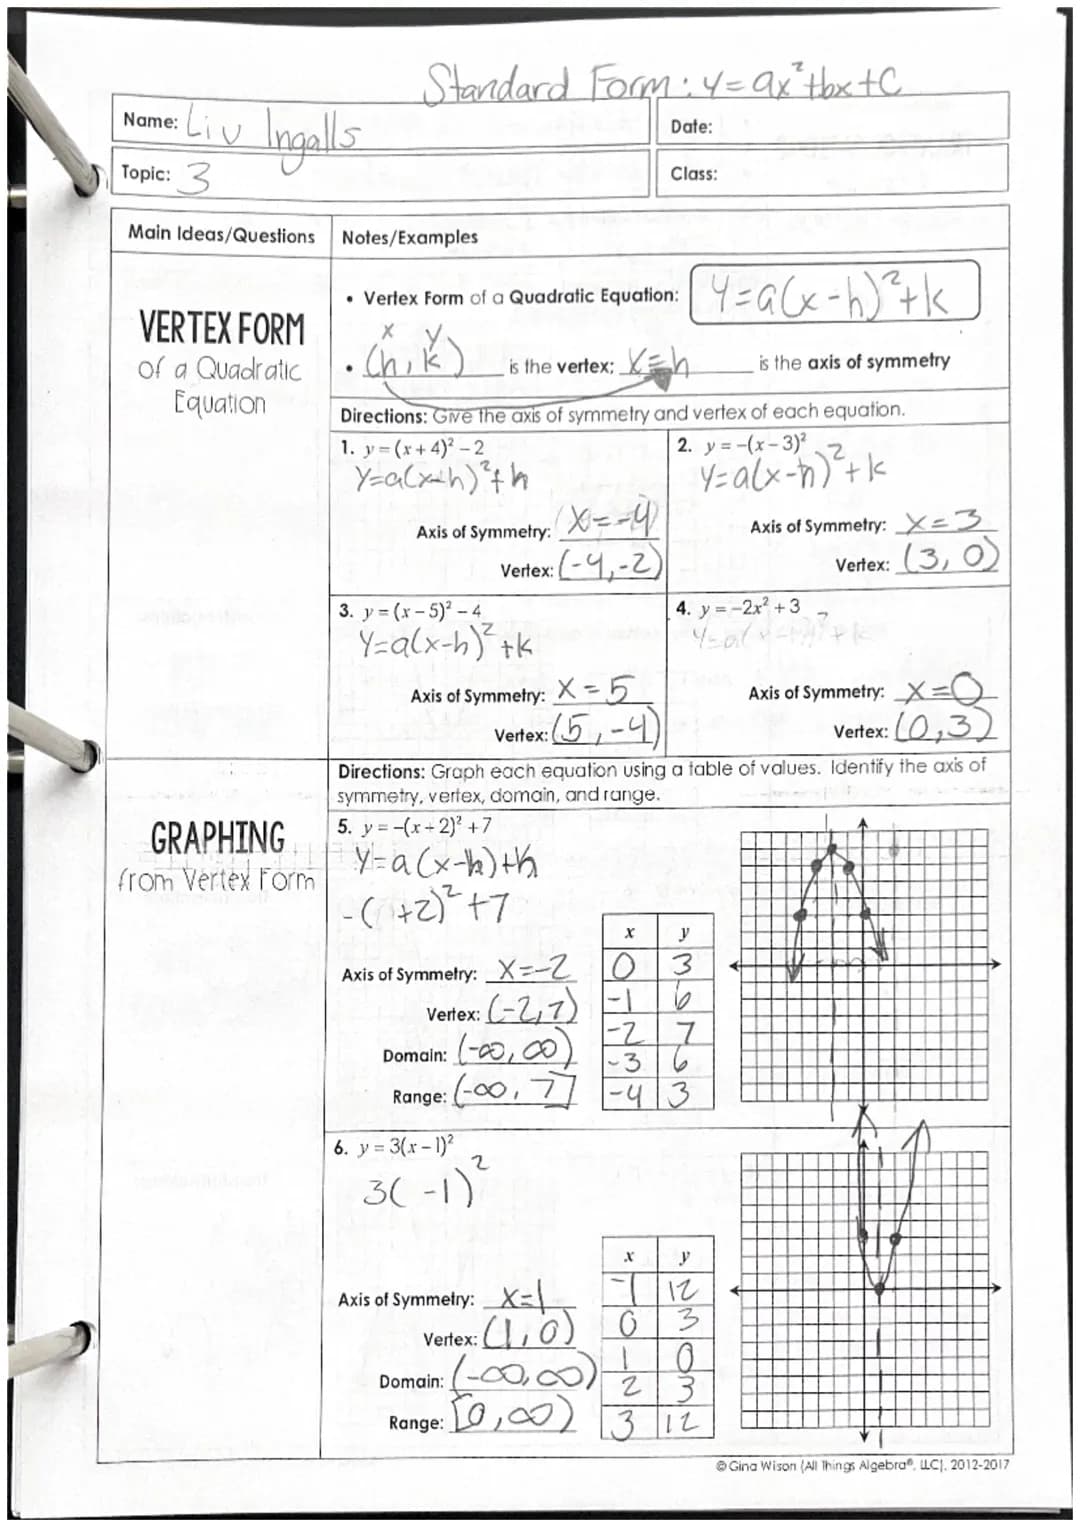 Standard Form: y=ax²+bx+c
Name: Liv Ingalls
Date:
Topic: 3
Class:
Main Ideas/Questions
Notes/Examples
VERTEX FORM
of a Quadratic
Equation
• Vertex Form of a Quadratic Equation: y=a(x-h)²+k
x y
• (h,k) is the vertex; x=h is the axis of symmetry
Directions: Give the axis of symmetry and vertex of each equation.
1. y = (x + 4)² – 2
y=a(x-h)²+h
Axis of Symmetry: x=-4
Vertex: (-4,-2)
2. y = –(x – 3)²
y=a(x-h)²+k
Axis of Symmetry: x=3
Vertex: (3, 0)
3. y = (x – 5)² – 4
y=a(x-h)²+k
Axis of Symmetry: x=5
Vertex: (5,-4)
4. y = –2x² + 3
Axis of Symmetry: x=0
Vertex: (0,3)
GRAPHING
from Vertex Form
Directions: Graph each equation using a table of values. Identify the axis of
symmetry, vertex, domain, and range.
5. y = –(x + 2)² + 7
y=a(x-h)+k
-( +2)²+7
Axis of Symmetry: x=-2
Vertex: (-2,7)
Domain: (-∞,∞)
Range: (-∞, 7]
x y
0 3
-1 6
-2 7
-3 6
-4 3
6. y = 3(x – 1)²
3( -1)²
Axis of Symmetry: x=1
Vertex: (1,0)
Domain: (-∞,∞)
Range: [0,∞)
x y
-1 12
0 3
1 0
2 3
3 12
© Gina Wilson (All Things Algebra®, LLC), 2012-2017